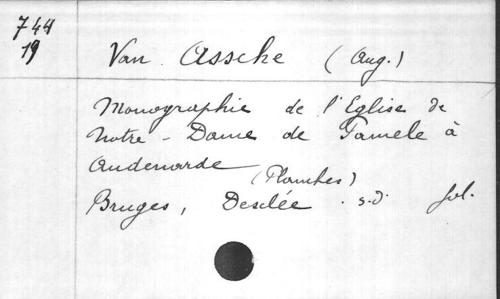 744
19
Van Assche (Aug.)
Monographie de l'Eglise de
Notre-Dame de Pamele à
Audenarde
(Planches)
Bruges, Desclée . s.d. fol.